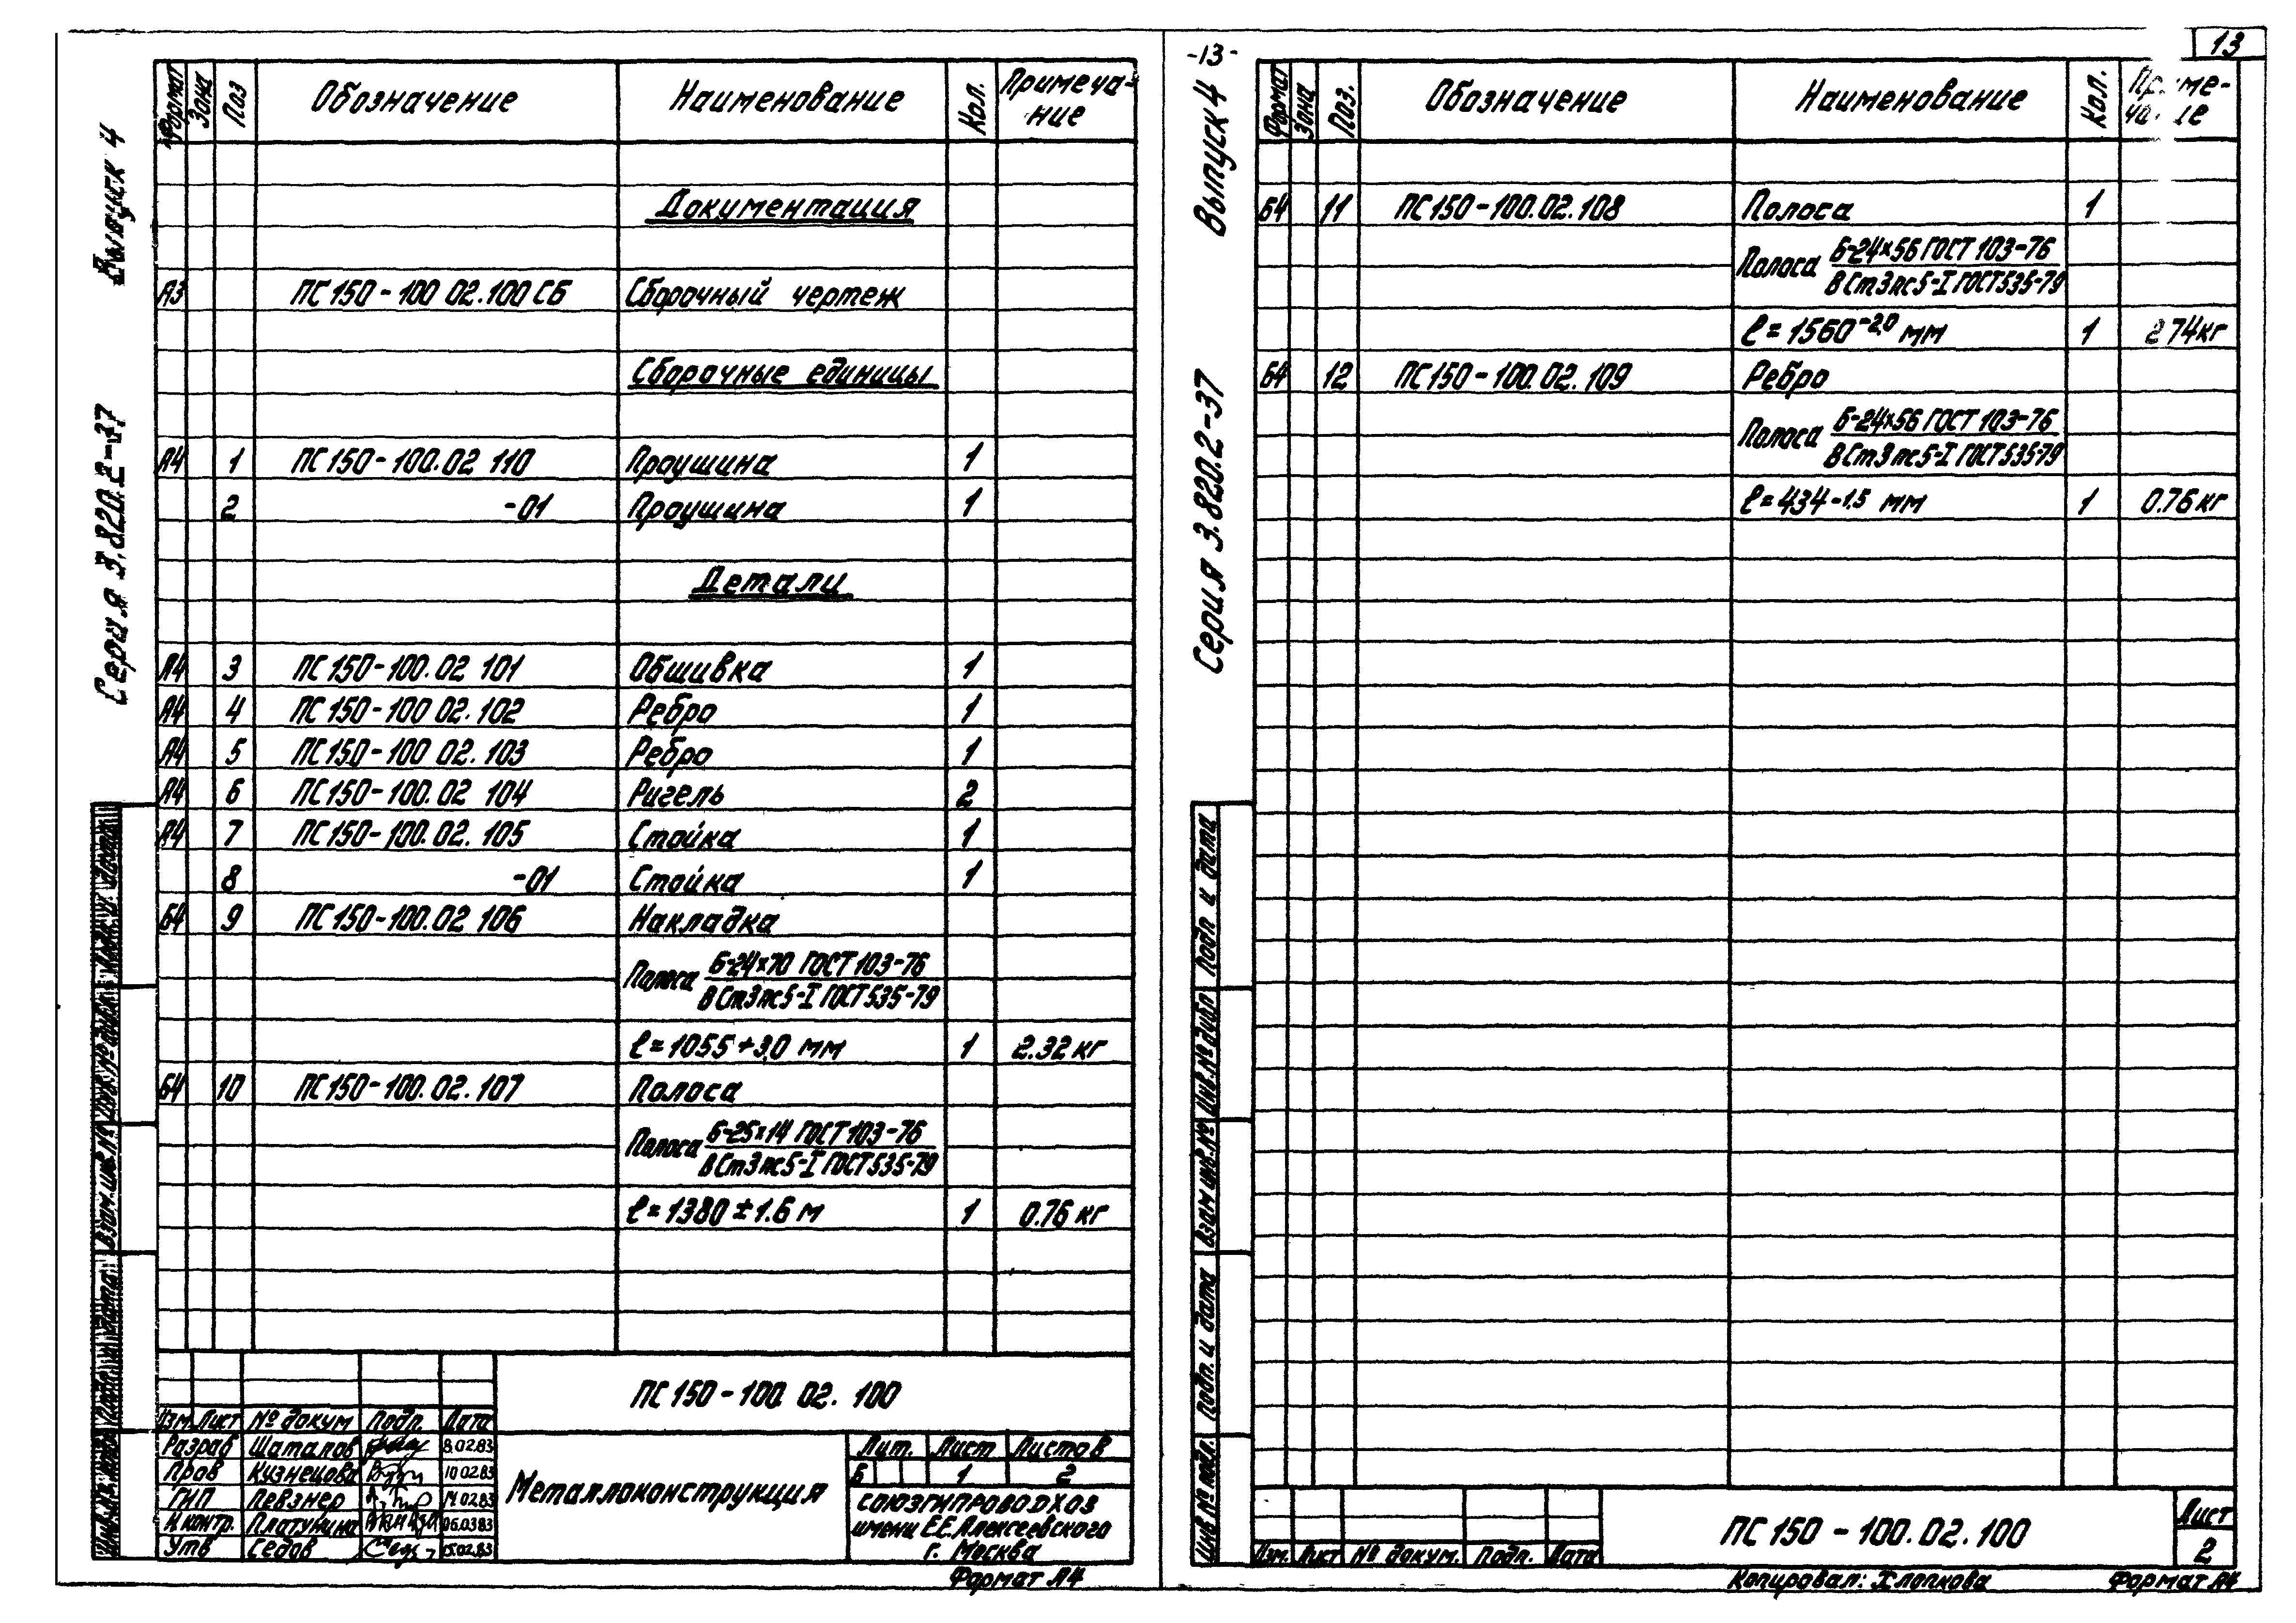 Выпуск 4
Серия 3.820.2-37
Формат Зона Поз Обозначение Наименование Кол. Примеча-
ние
Документация
А3 ПС150-100 02.100 СБ Сборочный чертеж
Сборочные единицы
А4 1 ПС150-100.02 110 Проушина 1
2 -01 Проушина 1
Детали
А4 3 ПС150-100.02 101 Обшивка 1
А4 4 ПС150-100 02.102 Ребро 1
А4 5 ПС150-100 02.103 Ребро 1
А4 6 ПС150-100.02 104 Ригель 2
А4 7 ПС150-100.02.105 Стойка 1
8 -01 Стойка 1
Б4 9 ПС150-100.02 106 Накладка
Полоса Б-24×70 ГОСТ 103-76
ВСт3пс5-I ГОСТ535-79
ℓ=1055+3,0 мм 1 2.32 кг
Б4 10 ПС150-100.02.107 Полоса
Полоса Б-25×14 ГОСТ 103-76
ВСт3пс5-I ГОСТ535-79
ℓ=1380±1.6 м 1 0.76 кг
ПС150-100.02.100
Изм Лист № докум Подп. Дата
Разраб Шаталов 8.02.83
Пров Кузнецова 10.02.83
ГИП Певзнер 14.02.83
Н.контр. Платунина 06.03.83
Утв Седов 15.02.83
Металлоконструкция
Лит. Лист Листов
Б 1 2
СОЮЗГИПРОВОДХОЗ
имени Е.Е.Алексеевского
г. Москва
Формат А4
Взам.инв.№
-13-
13
Выпуск 4
Серия 3.820.2-37
Формат Зона Поз. Обозначение Наименование Кол. Приме-
чание
Б4 11 ПС150-100.02.108 Полоса 1
Полоса Б-24×56 ГОСТ 103-76
ВСт3пс5-I ГОСТ535-79
ℓ=1560-2,0 мм 1 2.74кг
Б4 12 ПС150-100.02.109 Ребро
Полоса Б-24×56 ГОСТ 103-76
ВСт3пс5-I ГОСТ535-79
ℓ=434-1.5 мм 1 0.76 кг
Подп и дата
Инв.№ дубл
Взам инв.№
Подп. и дата
Инв № подл.
Изм. Лист № докум. Подп. Дата
ПС150-100.02.100
Лист
2
Копировал: Хлопкова Формат А4